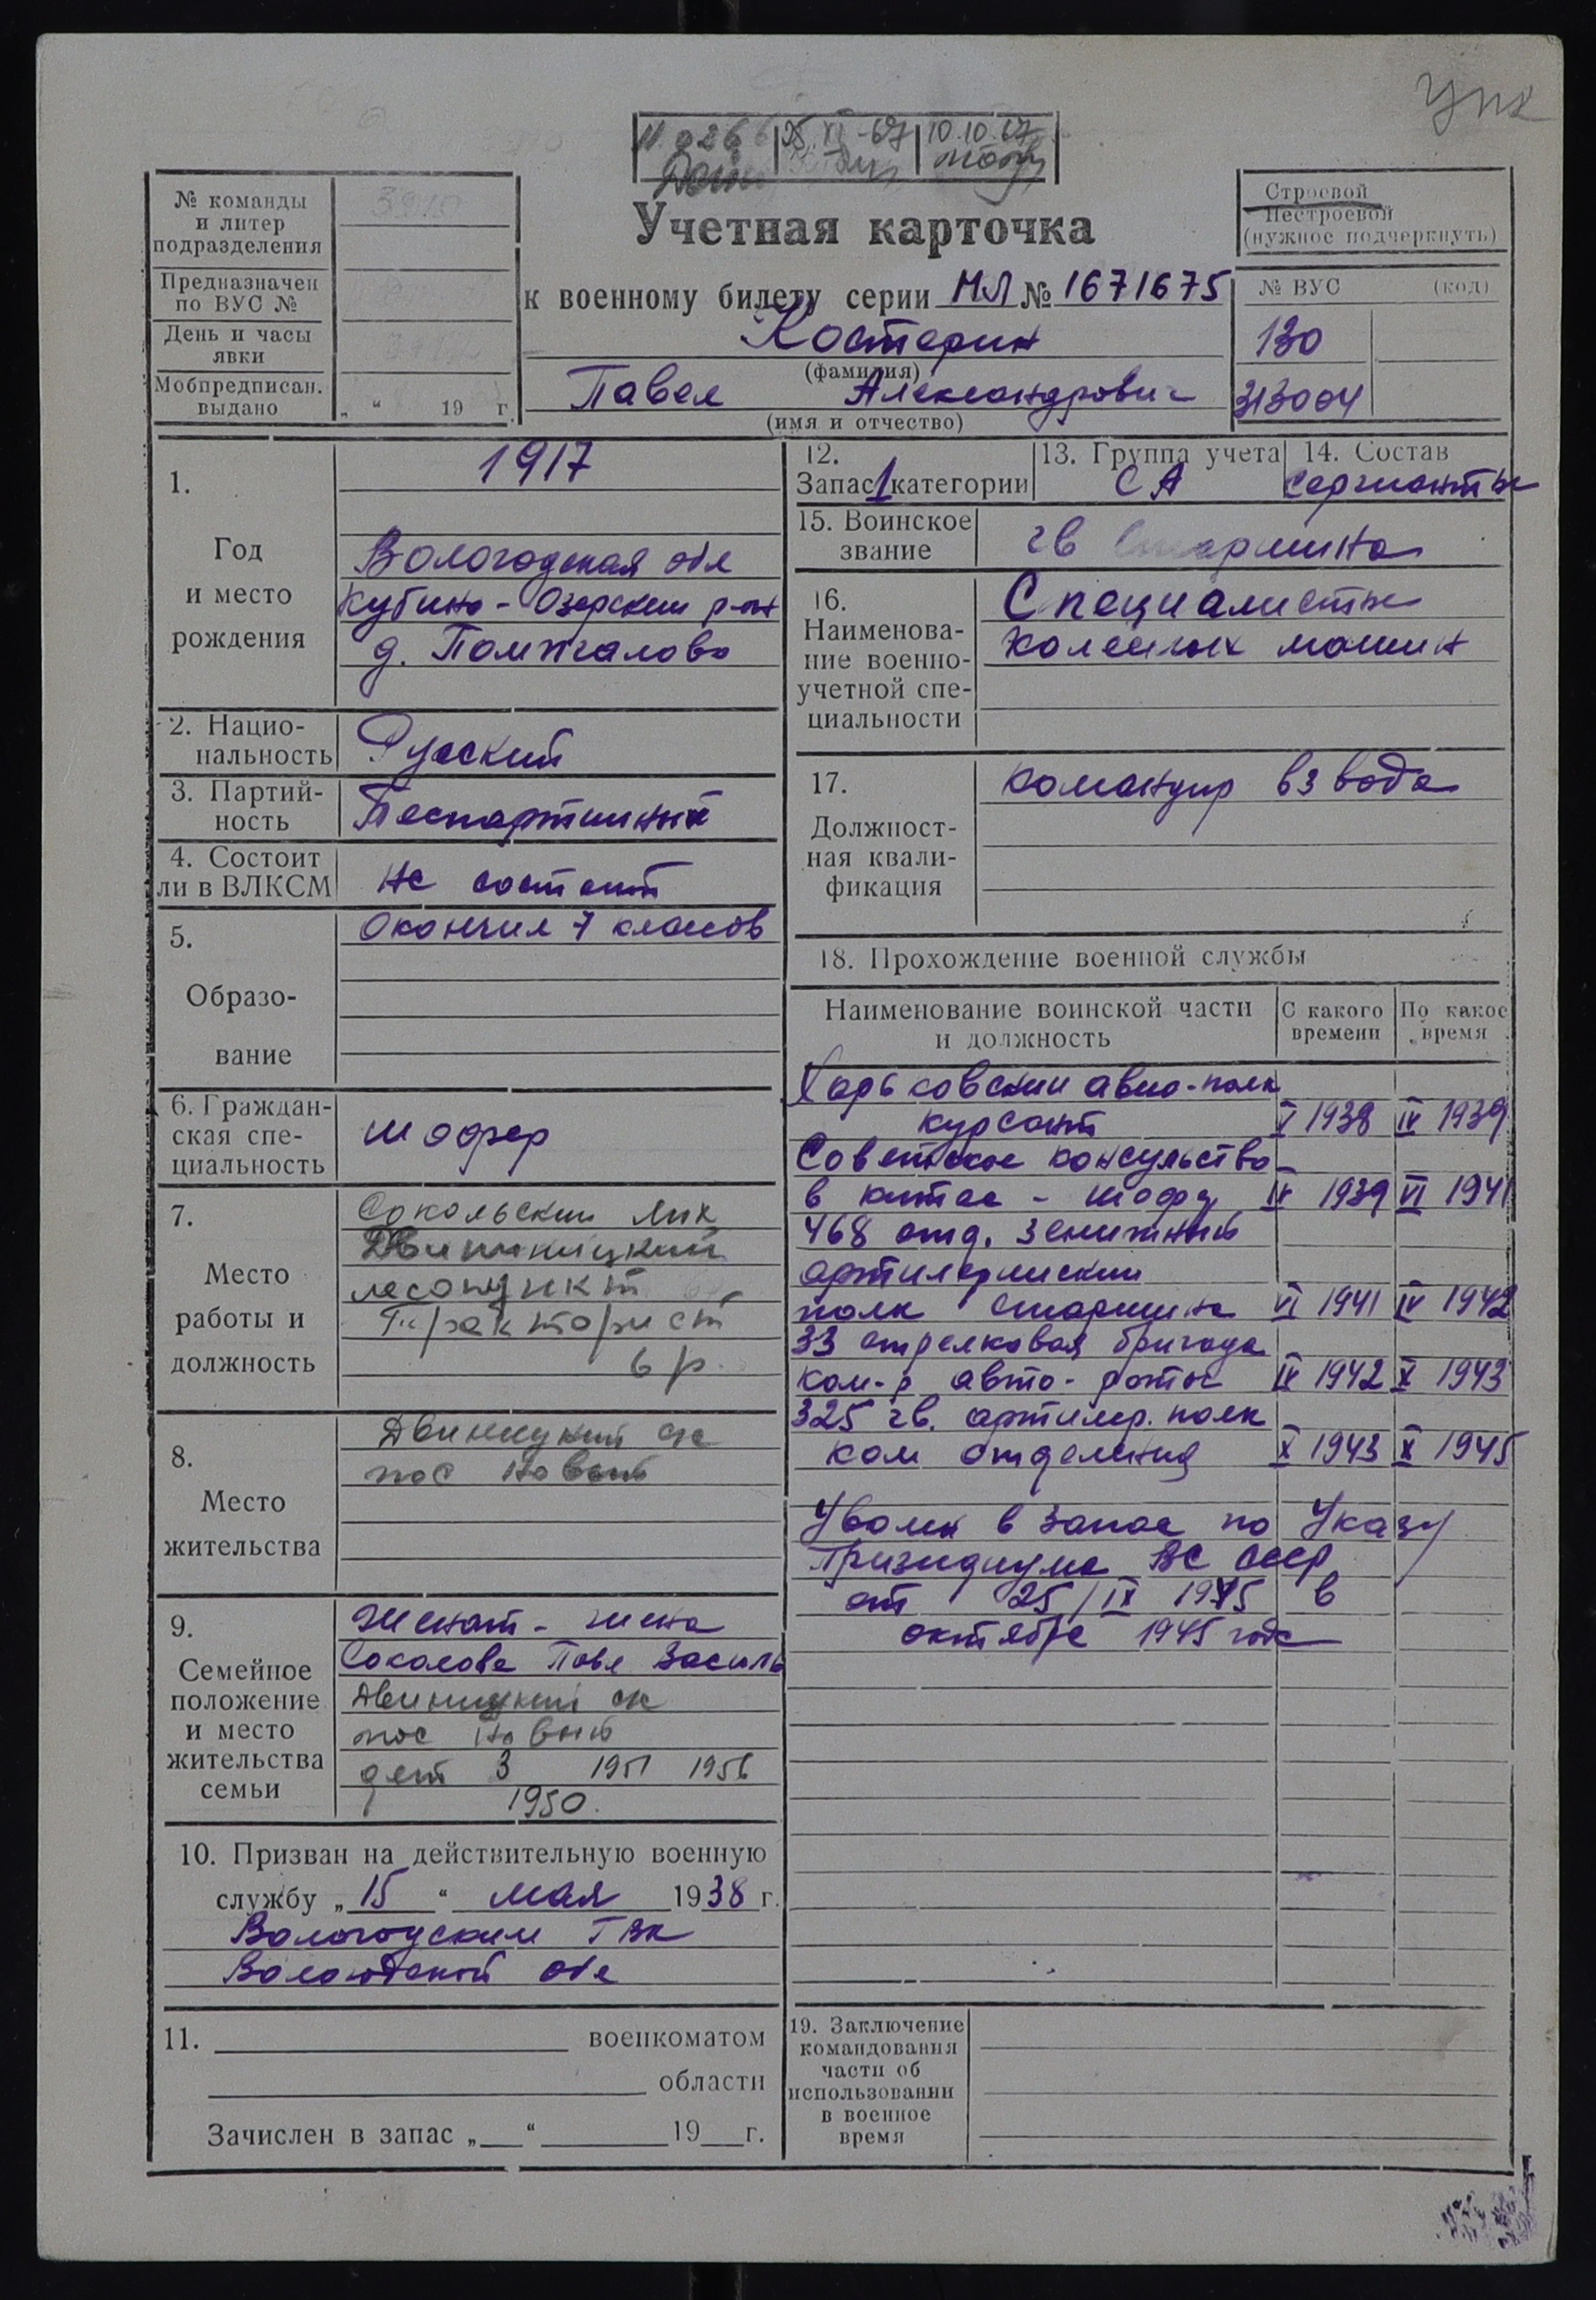 упк
10.10.67
№ команды
и литер
подразделения
Предназначен
по ВУС №
День и часы
явки
Мобпредписан.
выдано
„ “ 19 г.
Учетная карточка
к военному билету серии МЛ № 1671675
Костерин
(фамилия)
Павел Александрович
(имя и отчество)
Строевой
Нестроевой
(нужное подчеркнуть)
№ ВУС (код)
130
313004
1.
Год
и место
рождения
1917
Вологодская обл
Кубино-Озерский р-он
д.
2. Нацио-
нальность
Русский
3. Партий-
ность
Беспартийный
4. Состоит
ли в ВЛКСМ
Не состоит
5.
Образо-
вание
Окончил 7 класов
6. Граждан-
ская спе-
циальность
шофер
7.
Место
работы и
должность
Сокольский лпх
Двиницкий
лесопункт
Тракторист
6 р.
8.
Место
жительства
Двиницкий ск
пос Новый
9.
Семейное
положение
и место
жительства
семьи
Женат - жена
Соколова Павл Василь
Двиницкий ск
пос Новый
дет 3 1951 1956
1950.
10. Призван на действительную военную
службу „15“ мая 1938 г.
Вологодским ГВК
Вологодской обл
11. военкоматом
области
Зачислен в запас „ “ 19 г.
12.
Запас 1 категории
13. Группа учета
СА
14. Состав
сержанты
15. Воинское
звание
гв старшина
16.
Наименова-
ние военно-
учетной спе-
циальности
Специалисты
колесных машин
17.
Должност-
ная квали-
фикация
командир взвода
18. Прохождение военной службы
Наименование воинской части
и должность
С какого
времени
По какое
время
Харьковский авио-полк
курсант V 1938 IV 1939
Советское консульство
в китае - шофер IV 1939 VI 1941
468 отд. зенитный
артилерийский
полк старшина VI 1941 IV 1942
33 стрелковая бригада
ком-р авто-роты IV 1942 X 1943
325 гв. артилер. полк
ком отделения X 1943 X 1945
Уволен в запас по Указу
Призидиума ВС СССР
от 25/IX 1945 в
октябре 1945 года
19. Заключение
командования
части об
использовании
в военное
время